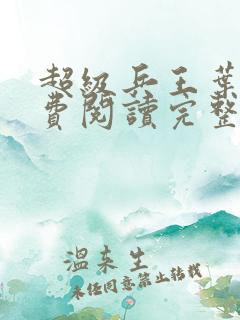 超級兵王葉
費閱讀完整
溫來生
未經同意禁止轉載